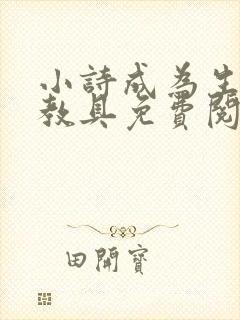 小詩成為生
教具免費閱
田開寶